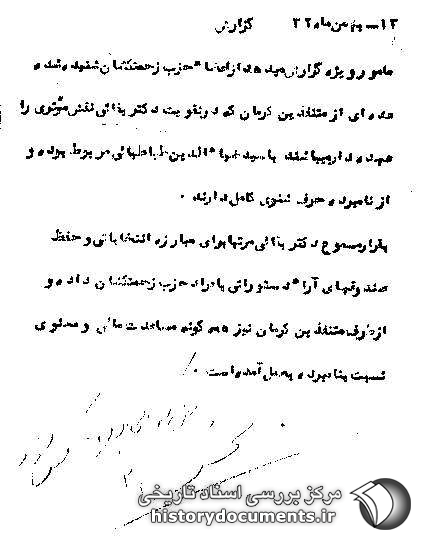 ۱۳ـ بهمن‌ماه ۳۲ گزارش
مامور ویژه گزارش میدهد از اعضاء حزب زحمتکشان شنیده شده
عده ای از متنفذین کرمان که در تقویت دکتر بقائی نقش موثری را
عهده دار میباشند با سید ضیاءالدین طباطبائی مربوط بوده و
از نامبرده حرف شنوی کامل دارند .
بقرار مسموع دکتر بقائی مرتبا برای مبارزه انتخاباتی و حفظ
صندوقهای آراء دستوراتی بافراد حزب زحمتکشان داده و
از طرف متنفذین کرمان نیز همه گونه مساعدت مالی و معنوی
نسبت بنامبرده بعمل آمده است .
مرکز بررسی اسناد تاریخی
historydocuments.ir